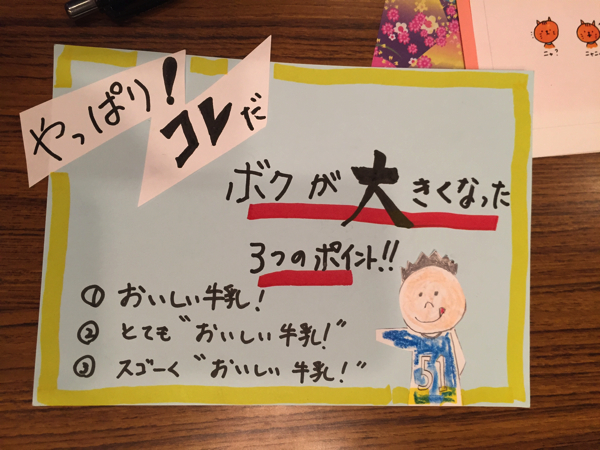 やっぱり!
コレだ
ボクが大きくなった
3つのポイント!!
① おいしい牛乳!
② とても"おいしい牛乳!"
③ スゴーく"おいしい牛乳!"
51
ニャ?
ニャン